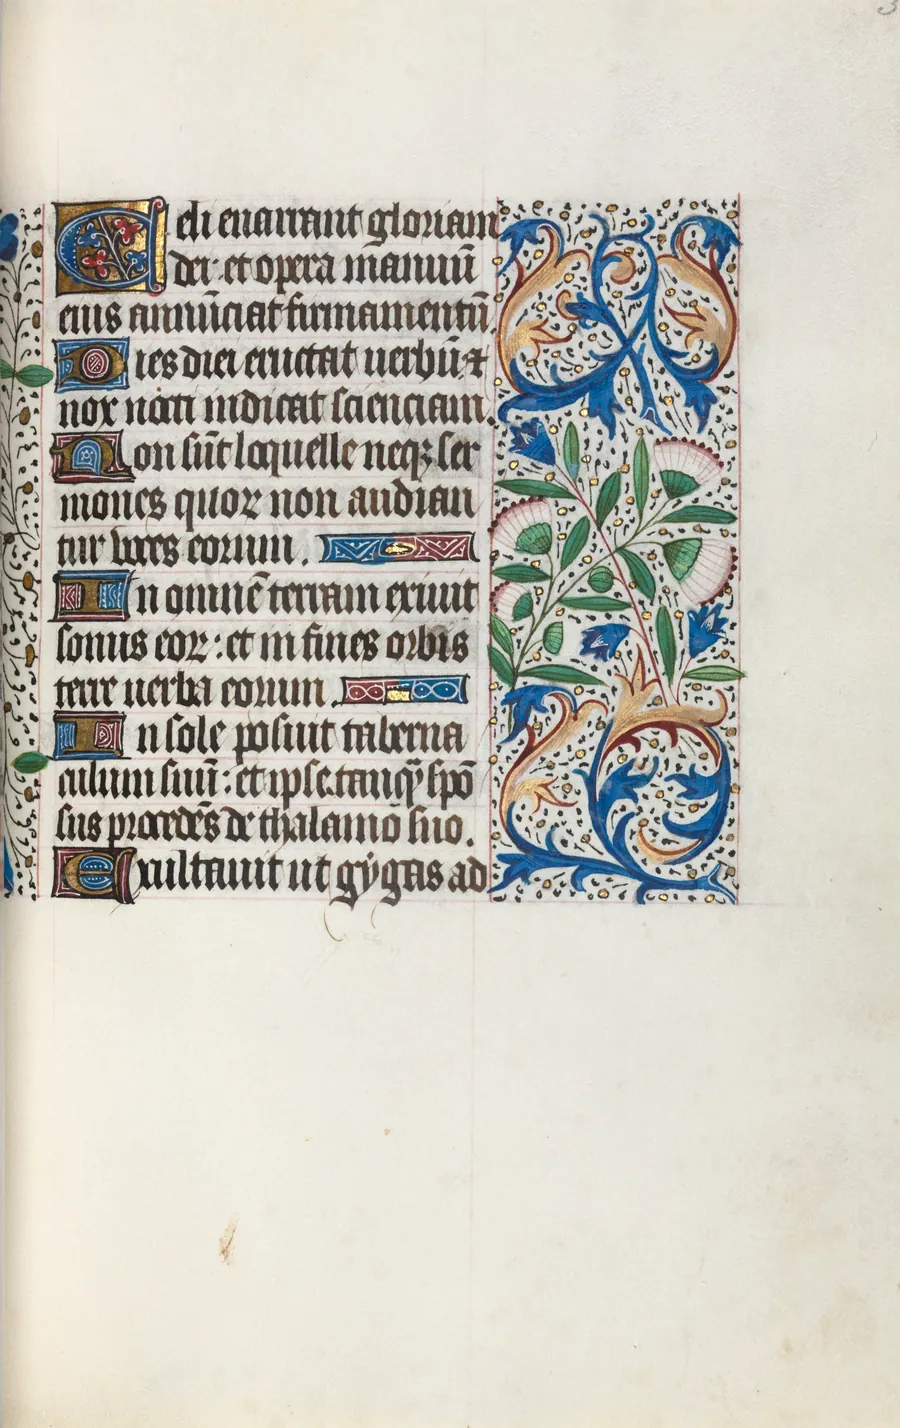 Celi enarrant gloriam
dei: et opera manuū
eius annūciat firmamentū
Dies diei eructat uerbū ⁊
nox nocti indicat scienciam.
Non sūt loquelle neqꝫ ser
mones quoꝝ non audian
tur uoces eorum.
In omnē terram exiuit
sonus eoꝝ: et in fines orbis
terre uerba eorum.
In sole posuit taberna
culum suū: et ipse tanqͣ spō
sus procedēs de thalamo suo.
Exultauit ut gygas ad